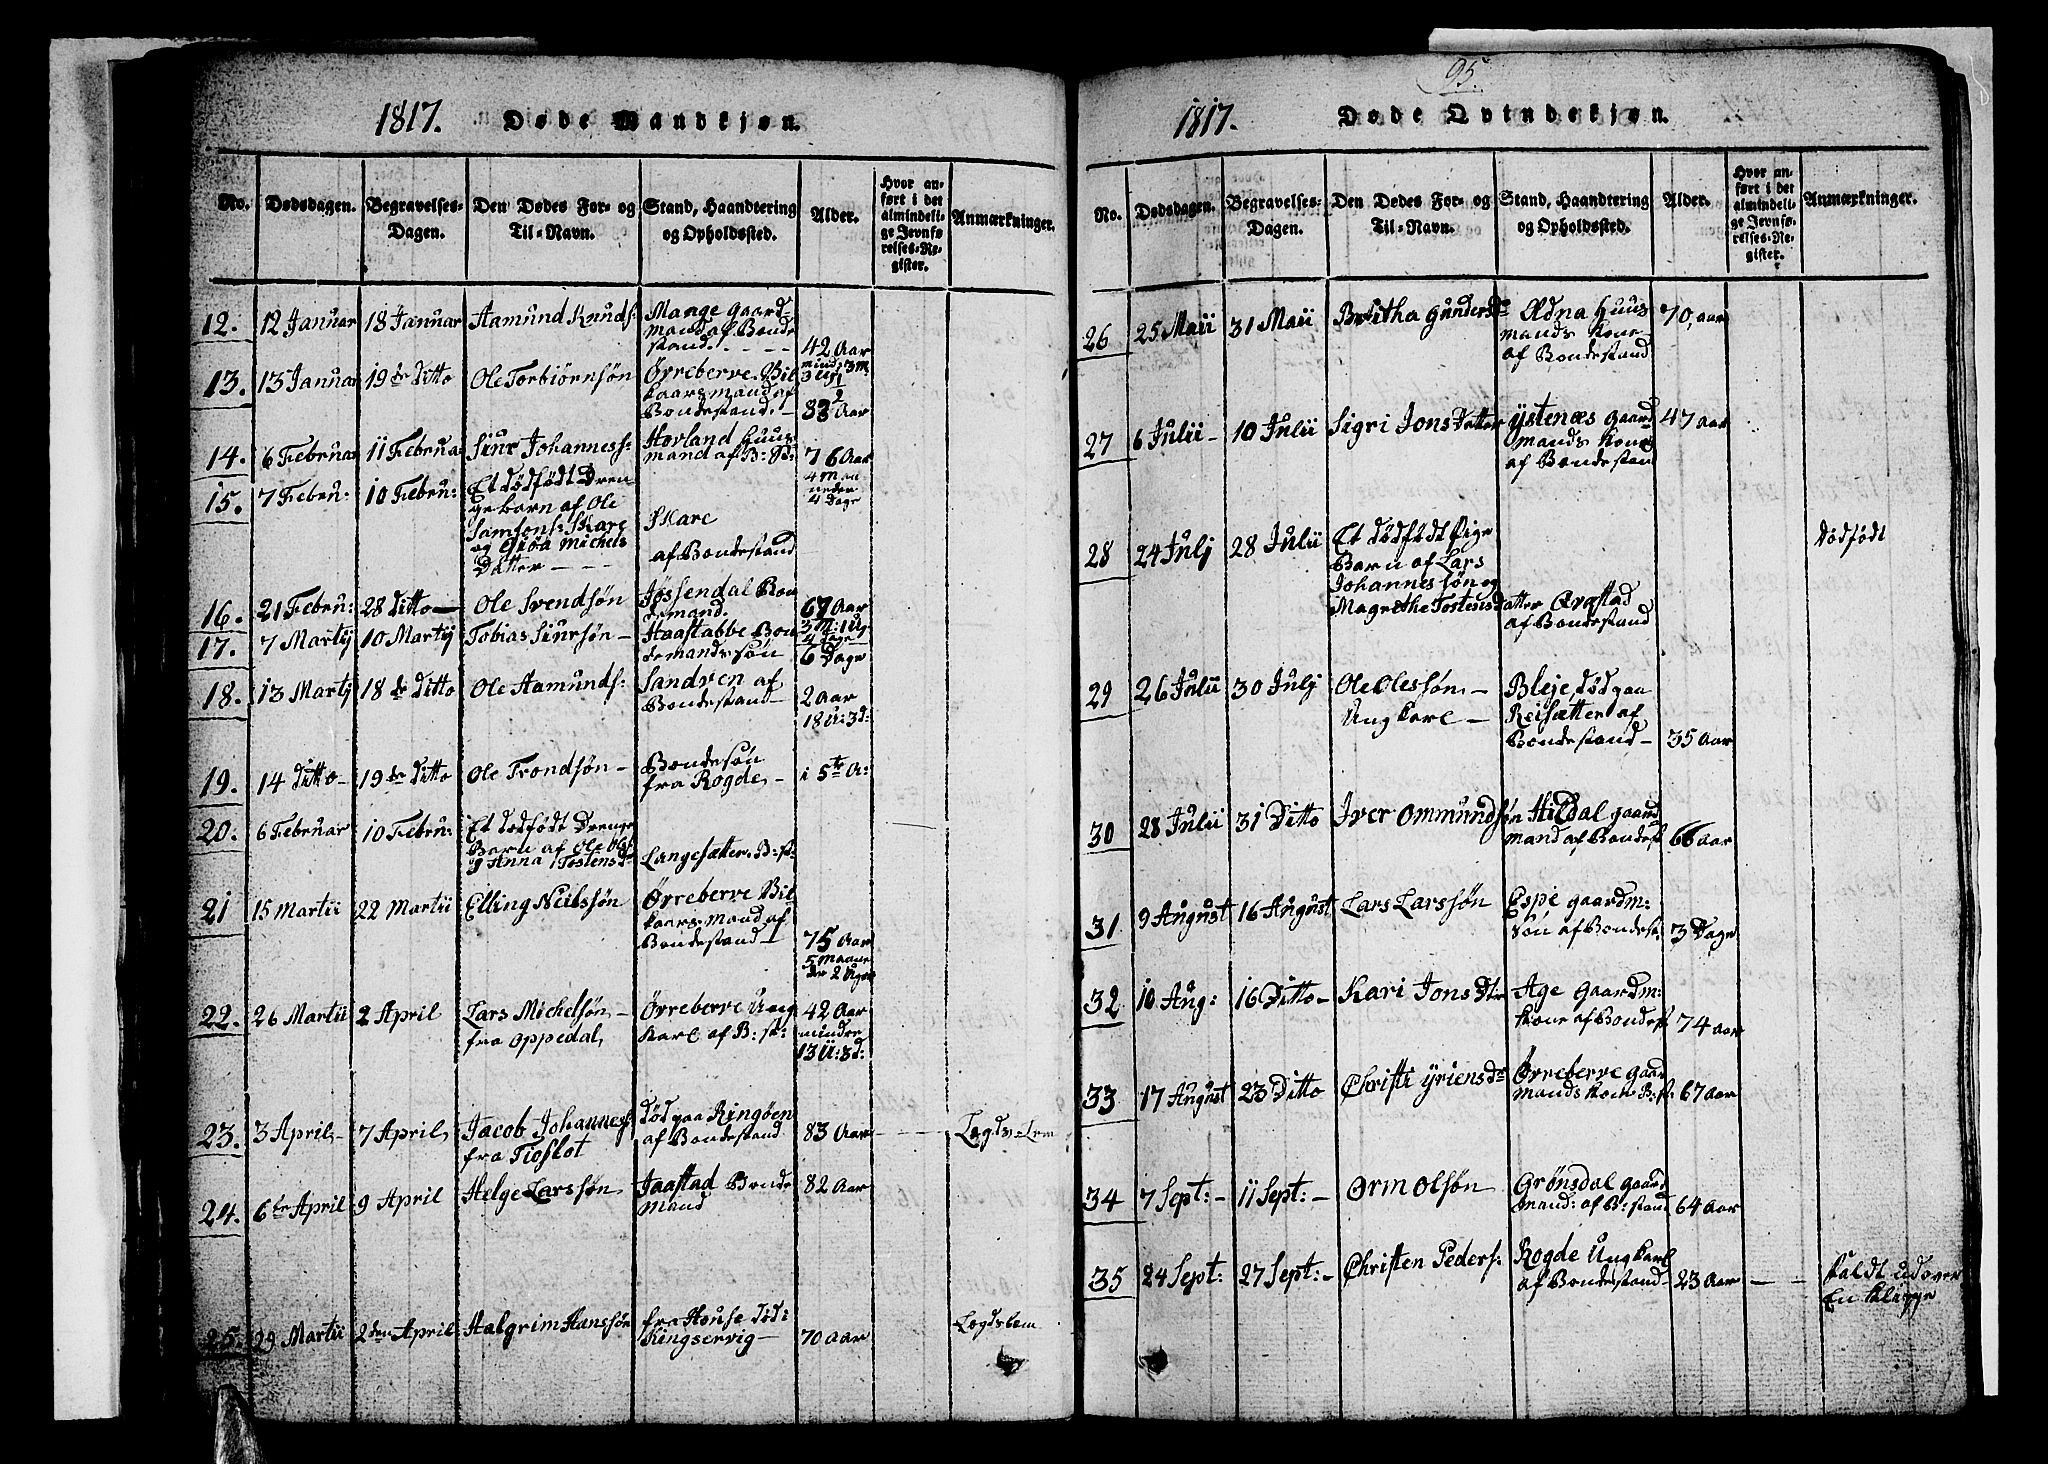 1817. Døde Mandkjøn.
No. Dødsdagen. Begravelses-Dagen. Den Dødes For- og Til-Navn. Stand, Haandtering og Opholdssted. Alder. Hvor anført i det almindelige Jevnførelses-Register. Anmærkninger.
12. 12 Januar 18 Januar Aamund Knuds: Mange gaard-
mand af Bonde
stand. 42 Aar
mind 3 M
3 Ug:
13. 13 Januar 19de Ditto Ole Torbiørnsøn Ørreberve. Vil
kaarsmand af
Bondestand. 83 Aar
14. 6 Februar 11 Februar Siur Johanness: Hovland Huus
mand af B: St: 76 Aar
4 Maa
neder
4 Dage
15. 7 Febru: 10 Febru: Et dødfødt Dren
gebarn af Ole
Samsons: Skare
og Giøa Michels
Datter
Skare
af Bondestand
16. 21 Febru: 28 Ditto Ole Svendsøn Jøssendal Bon
demand. 67 Aar
3 M: 1 Ug
4 Dage
17. 7 Martij 10 Martij Tobias Siursøn Haastabbe Bon
demandssøn 6 Dage
18. 13 Martij 18de Ditto Ole Aamunds: Sandven af
Bondestand 2 Aar
18 U: 3 d:
19. 14 Ditto 19de Ditto Ole Trondsøn Bondesøn
fra Rogde i 5te A:
20. 6 Februar 10 Febru: Et dødfødt Drenge
Barn af Ole Ols:
og Anna Tostensd
Langesætter. B: st:
21 15 Martii 22 Martii Elling Neilssøn Ørreberve Vil
kaarsmand af
Bondestand 75 Aar
5 Maane
der 2 Uger
22. 26 Martii 2 April Lars Michelsøn
fra Oppedal, Ørreberve Ung
karl af B: st: 42 Aar
mindre
13 U: 3 d:
23. 3 April 7 April Jacob Johanness:
fra Tioflot død paa Ringøen
af Bondestand 83 Aar Legds-Lem
24. 6te April 9 April Helge Larssøn Jaastad Bonde
mand 82 Aar
25. 29 Martii 2den April Halgrim Hanssøn fra House død i
Kingservig 70 Aar Legdslem
95.
1817. Døde Qvindekjøn.
No. Dødsdagen. Begravelses-Dagen. Den Dødes For- og Til-Navn. Stand, Haandtering og Opholdssted. Alder. Hvor anført i det almindelige Jevnførelses-Register. Anmærkninger.
26 25 Maii 31 Maii Britha Gundersdr Ædna Huus
mands Kone
af Bondestand 70, aar
27 6 Julii 10 Julii Sigri Jons Datter Ystenæs Gaard
mands Kone
af Bondestand 47 aar
28 24 Julj 28 Julii Et dødfødt Pige
Barn af Lars
Johannessøn og
Magrethe Tostensdatter Qvastad
af Bondestand
Dødfødt
29 26 Julii 30 Julj Ole Olessøn
Ungkarl Bleje, død paa
Reisætter af
Bondestand 35 Aar
30 28 Julii 31 Ditto Iver Ommundsøn Hildal gaard
mand af Bondest 66 aar
31 9 August 16 August Lars Larssøn Espe gaardm:
Søn af Bondest: 3 Dage
32 10 Aug: 16 Ditto Kari Jons Dtr Age Gaardm:
Kone af Bondest 74 aar
33 17 August 23 Ditto Christi Yriensdr Ørreberve gaar
mands Kone B: st: 67 aar
34 7 Sept: 11 Sept: Orm Olsøn Grønsdal gaard
mand: af B: stand 64 aar
35 24 Sept: 27 Sept: Christen Peders: Rogde Ungkarl
af Bondestand 23 aar faldt udover
En Klippe